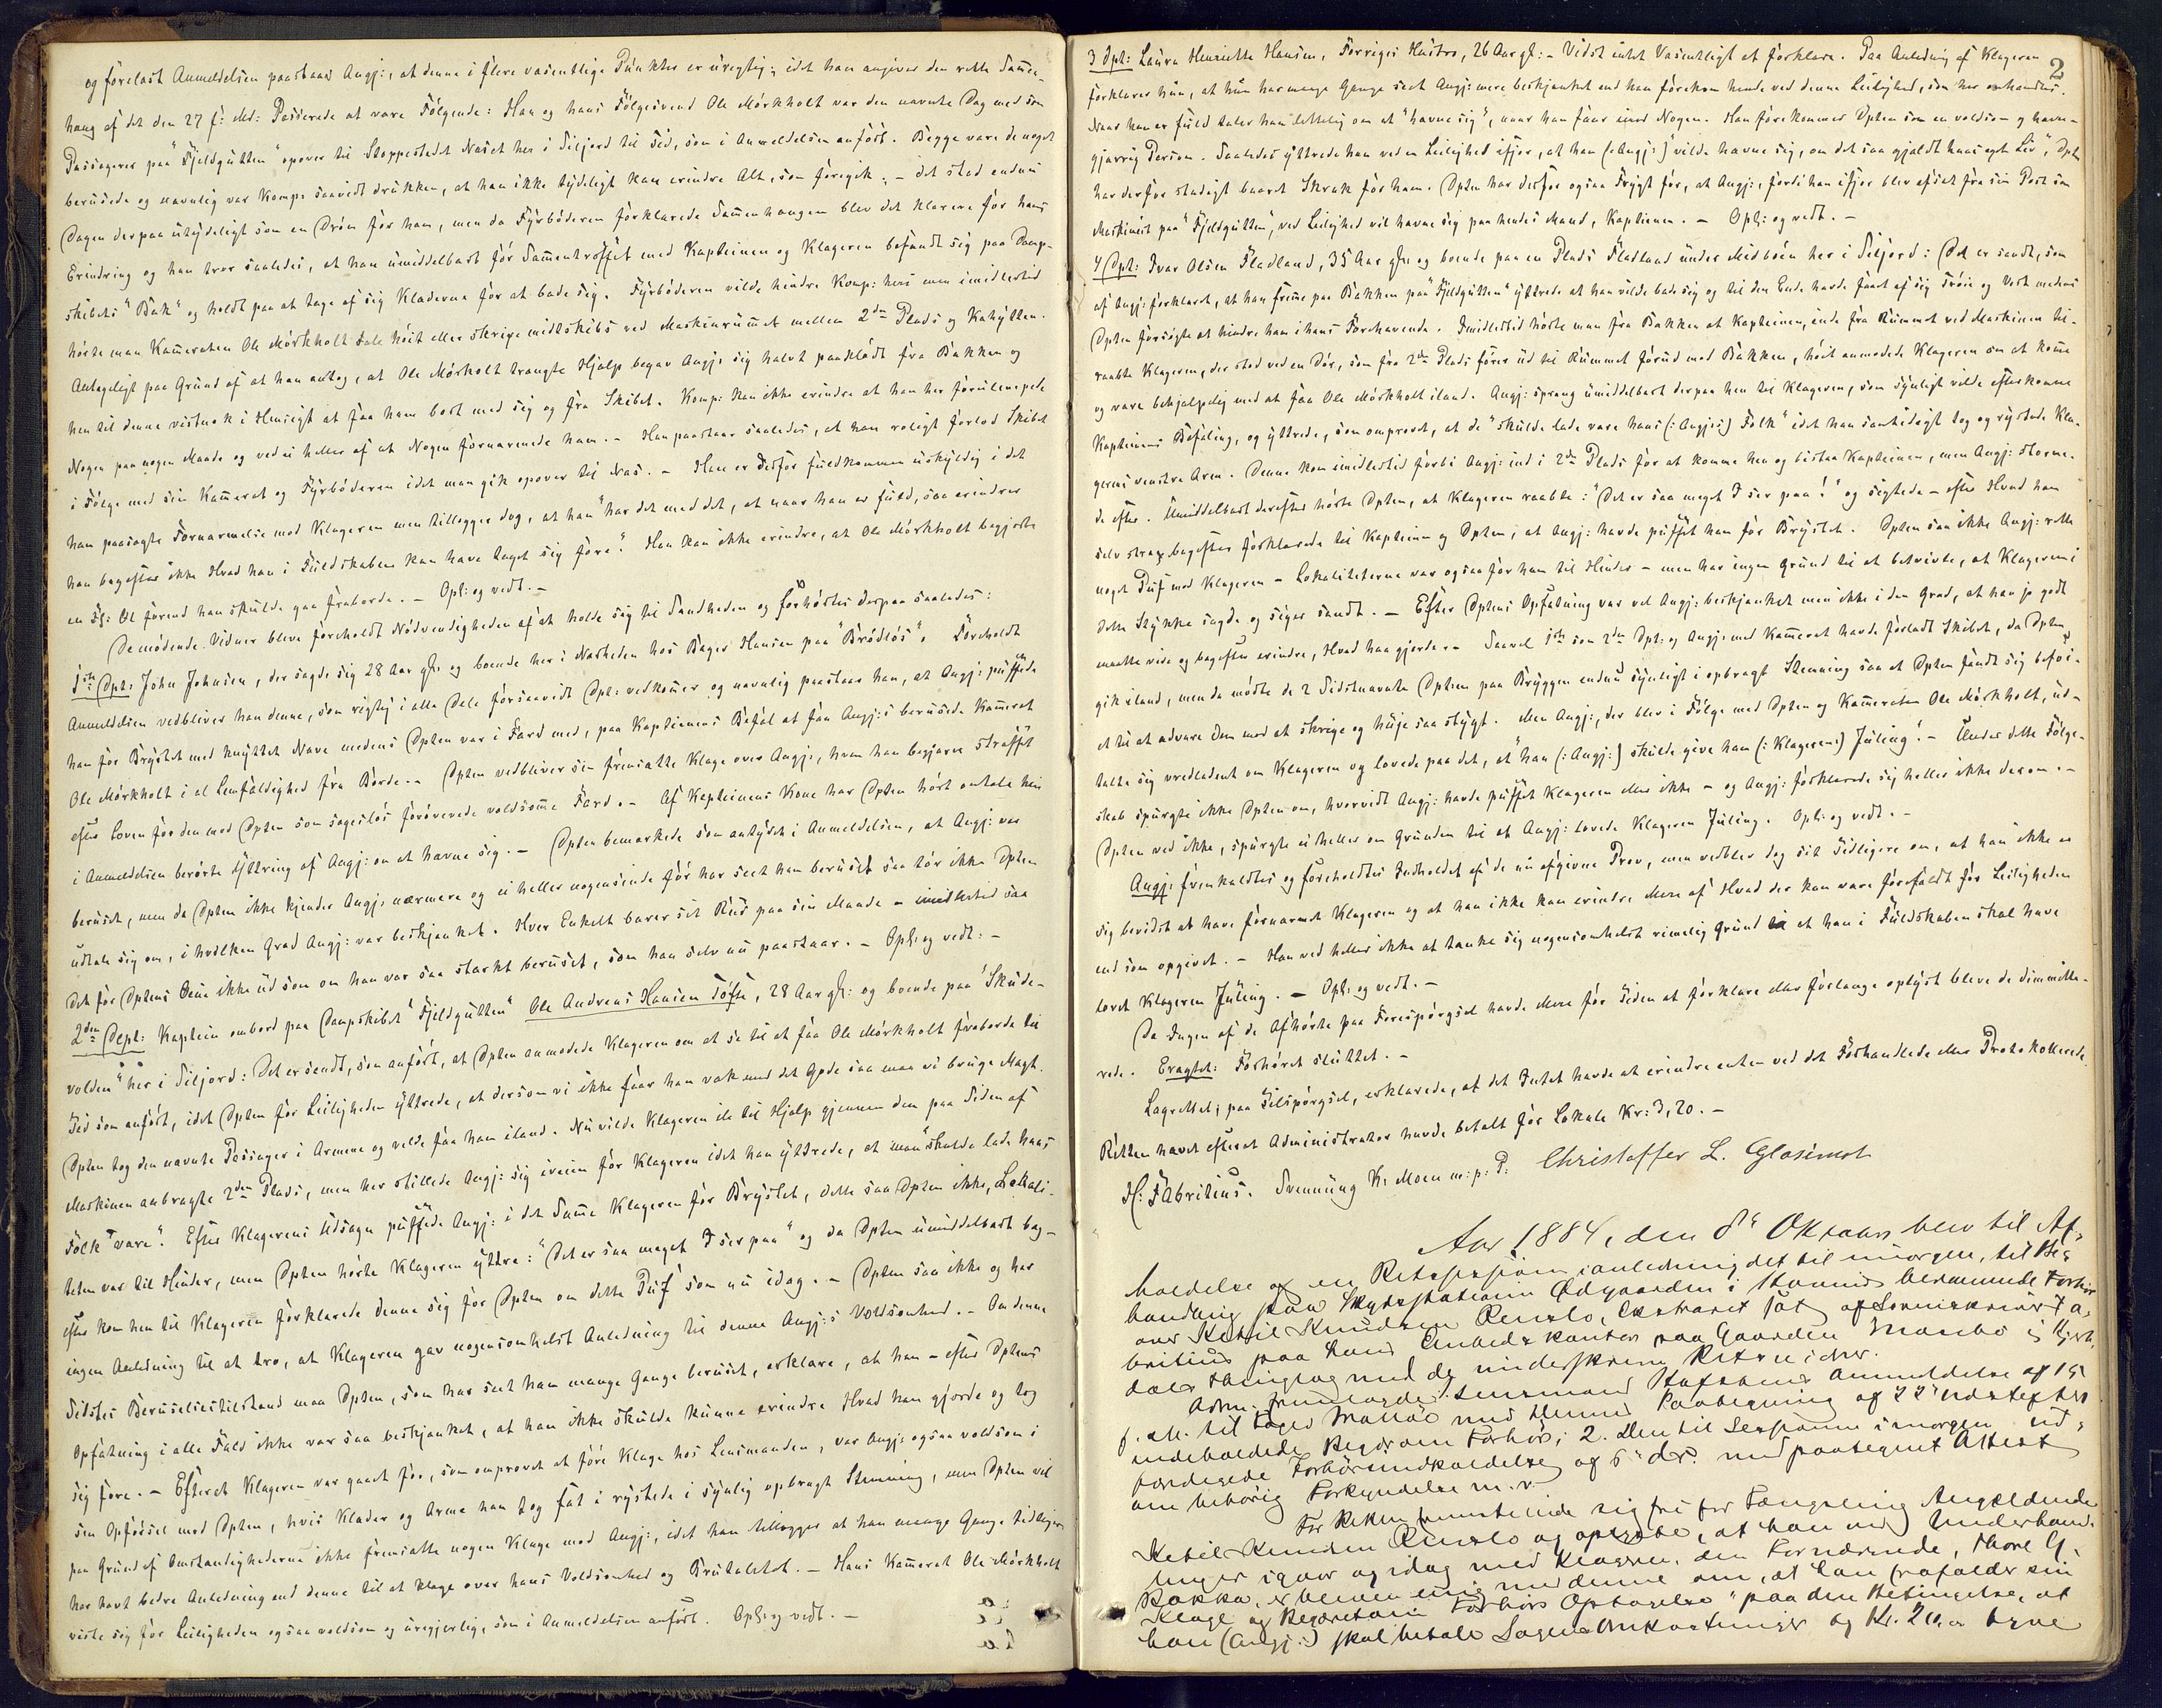 og forelæst Anmeldelsen paastaar Angj:, at denne i flere væsentlige Punkter er urigtig; idet han angiver den rette Sammen-
hæng af det den 27 f: Md: Passerede at være Følgende: Han og hans Følgesvend Ole Mörkholt var den nævnte Dag med som
Passagerer paa "Fjeldgutten" opover til Stoppestedet Næset her i Siljord til Tid, som i Anmeldelsen anført. Begge vare de noget
berusede og navnlig var Komp: saavidt drukken, at han ikke tydeligt kan erindre Alt, som foregik; - det stod endnu
Dagen derpaa utydeligt som en Dröm för ham, men da Fyrböderen forklarede Sammenhængen blev det klarere for hans
Erindring og han tror saaledes, at han umiddelbart för Sammentræffet med Kapteinen og Klageren befandt sig paa Damp-
skibets "Bak" og holdt paa at tage af sig Klæderne for at bade sig. Fyrböderen vilde hindre Komp: heri men imidlertid
hörte man Kameraten Ole Mörkholt tale höit eller skrige midtskibs ved Maskinrummet mellem 2den Plads og Kahytten.
Antageligt paa Grund af at han antog, at Ole Mörkholt trængte Hjælp begav Angj: sig halvt paaklædt fra Bakken og
hen til denne vistnok i Hensigt at faa ham bort med sig og fra Skibet. Komp: kan ikke erindre at han her forulempede
Nogen paa nogen Maade og ved ei heller af at Nogen fornærmede ham. - Han paastaar saaledes, at han roligt forlod Skibet
i Følge med sin Kamerat og Fyrböderen idet man gik opover til Næs. - Han er derfor fuldkommen uskyldig i det
ham paasagte Fornærmelse mod Klageren men tillægger dog, at han "har det med det, at naar han er fuld, saa erindrer
han bagefter ikke Hvad han i Fuldskaben kan have taget sig före". Han kan ikke erindre, at Ole Mörkholt begjærte
en Fl: Öl förend han skulde gaa fraborde. - Opl: og vedt. -
De mødende Vidner bleve foreholdt Nödvendigheden af at holde sig til Sandheden og forhörtes derpaa saaledes:
1ste Dpt: John Johnsen, der sagde sig 28 Aar gl: og boende her i Nærheden hos Bager Hansen paa "Brödlös". Foreholdt
Anmeldelsen vedbliver han denne, som rigtig i alle Dele forsaavidt Dpt: vedkommer og navnlig paastaar han, at Angj: puffede
ham for Brystet med knyttet Næve medens Dpten var i Færd med, paa Kapteinens Befal at faa Angj:s berusede Kamerat
Ole Mörkholt i al Lemfældighed fra Borde. - Dpten vedbliver sin fremsatte Klage over Angj:, hvem han begjærer straffet
efter Loven for den mod Dpten som sagesløs forøverede voldsomme Færd. - Af Kapteinens Kone har Dpten hört omtale hin
i Anmeldelsen berörte Yttring af Angj: om at hævne sig. - Dpten bemærkede som antydet i Anmeldelsen, at Angj: var
beruset, men da Dpten ikke kjender Angj: nærmere og ei heller nogensinde för har seet ham beruset saa tör ikke Dpten
udtale sig om, i hvilken Grad Angj: var beskjænket. Hver Enkelt bærer sit Rus paa sin Maade - imidlertid saa
det for Dptens Öine ikke ud som om han var saa stærkt beruset, som han selv nu paastaar. - Opl: og vedt: -
2den Dept: Kaptein ombord paa Dampskibet "Fjeldgutten" Ole Andreas Hansen Töfte, 28 Aar gl: og boende paa "Skude-
volden" her i Siljord: Det er sandt, som anført, at Dpten anmodede Klageren om at se til at faa Ole Mörkholt fraborde til
Tid som anført, idet Dpten for Leiligheden yttrede, at dersom vi ikke faar ham væk med det Gode saa maa vi bruge Magt.
Dpten tog den nævnte Passager i Armene og vilde faa ham iland. Nu vilde Klageren ile til Hjælp gjennem den paa Siden af
Maskinen anbragte 2den Plads, men her stillede Angj: sig iveien for Klageren idet han yttrede, at man "skulde lade hans
Folk være". Efter Klagerens Udsagn puffede Angj: i det Samme Klageren for Brystet, dette saa Dpten ikke, Lokali-
teten var til Hinder, men Dpten hörte Klageren yttre: "Det er saa meget I ser paa" og da Dpten umiddelbart bag-
efter kom hen til Klageren forklarede denne sig for Dpten om dette Puf som nu idag. - Dpten saa ikke og har
ingen Anledning til at tro, at Klageren gav nogensomhelst Anledning til denne Angj:s Voldsomhed. - Om denne
Sidstes Beruselsestilstand maa Dpten, som har seet ham mange Gange beruset, erklære, at han - efter Dptens
Opfatning i alle Fald ikke var saa beskjænket, at han ikke skulde kunne erindre Hvad han gjorde og tog
sig fore. - Efterat Klageren var gaaet for, som omprovet at före Klage hos Lensmanden, var Angj: ogsaa voldsom i
sin Opförsel mod Dpten, hvis Klæder og Arme han tog fat i rystede i synlig opbragt Stemning, men Dpten vil
paa Grund af Omstændighederne ikke fremsætte nogen Klage mod Angj:, idet han tillægger at han mange Gange tidligere
har havt bedre Anledning end denne til at klage over hans Voldsomhed og Brutalitet. - Hans Kamerat Ole Mörkholt
viste sig for Leiligheden ogsaa voldsom og uregjerlig, som i Anmeldelsen anført. Opl: og vedt. -
2
3 Dpt: Laura Henriette Hansen, Forriges Hustro, 26 Aar gl: - Vidste intet Væsentligt at forklare. Paa Anledning af Klageren
forklarer hun, at hun har mange Gange seet Angj: mere beskjænket end han forekom hende ved denne Leilighed, som her omhandles.
Naar han er fuld taler han lettelig om at "hævne sig", naar han faar imod Nogen. Han forekommer Dpten som en voldsom og hævn-
gjærrig Person. Saaledes yttrede han ved en Leilighed ifjor, at han (: Angj:) vilde hævne sig, om det saa gjaldt hans eget Liv", Dpten
har derfor stadigt baaret Skræk for ham. Dpten har derfor ogsaa Frygt for, at Angj:, fordi han ifjor blev afsat fra sin Post som
Maskinist paa "Fjeldgutten", ved Leilighed vil hævne sig paa hendes Mand, Kapteinen. - Opl: og vedt. -
4 Dpt: Ivar Olsen Fladland, 35 Aar gl: og boende paa en Plads Fladland under Midböen her i Siljord: Det er sandt, som
af Angj: forklaret, at han fremme paa Bakken paa "Fjeldgutten" yttrede at han vilde bade sig og til den Ende havde faaet af sig Tröie og Vest medens
Dpten forsøgte at hindre ham i hans Forehavende. Imidlertid hörte man fra Bakken at Kapteinen, inde fra Rummet ved Maskinen til-
raabte Klageren, der stod ved en Dör, som fra 2den Plads förer ud til Rummet forud med Bakken, höit anmodede Klageren om at komme
og være behjælpelig med at faa Ole Mörkholt iland. Angj: sprang umiddelbart derpaa hen til Klageren, som synligt vilde efterkomme
Kapteinens Befaling, og yttrede, som omprovet, at de "skulde lade være hans (: Angj:s:) Folk" idet han samtidigt tog og rystede Kla-
gerens venstre Arm. Denne kom imidlertid forbi Angj: ind i 2den Plads for at komme hen og bistaa Kapteinen, men Angj: storme-
de efter. Umiddelbart derefter hörte Dpten, at Klageren raabte: "Det er saa meget I ser paa!" og sigtede - efter Hvad han
selv strax bagefter forklarede til Kapteinen og Dpten, at Angj: havde puffet ham for Brystet. Dpten saa ikke Angj: rette
noget Puf mod Klageren - Lokaliteterne var ogsaa for ham til Hinder - men har ingen Grund til at betvivle, at Klageren i
dette Stykke sagde og siger sandt. - Efter Dptens Opfatning var vel Angj: beskjænket men ikke i den Grad, at han jo godt
maatte vide og bagefter erindre, Hvad han gjorde. - Saavel 1ste som 2den Dpt: og Angj: med Kamerat havde forladt Skibet, da Dpten
gik iland, men da mödte de 2 Sidstnævnte Dpten paa Bryggen endnu synligt i opbragt Stemning saa at Dpten fandt sig beføi-
et til at advare dem mod at skrige og huje saa stygt. Men Angj:, der blev i Følge med Dpten og Kameraten Ole Mörkholt, ud-
talte sig vredladent om Klageren og lovede paa det, at "han (: Angj:) skulde give ham (: Klageren:) Juling". - Under dette Følge-
skab spurgte ikke Dpten om, hvorvidt Angj: havde puffet Klageren eller ikke - og Angj: forklarede sig heller ikke derom. -
Dpten ved ikke, spurgte ei heller om Grunden til at Angj: lovede Klageren Juling. Opl: og vedt. -
Angj: fremkaldtes og foreholdtes Indholdet af de nu afgivne Prov, men vedblev dog sit Tidligere om, at han ikke er
sig bevidst at have fornærmet Klageren og at han ikke kan erindre Mere af Hvad der kan være forefaldt for Leiligheden
end som opgivet. - Han ved heller ikke at tænke sig nogensomhelst rimelig Grund til at han i Fuldskaben skal have
lovet Klageren Juling. - Opl: og vedt. -
Da Ingen af de Afhörte paa Forespørgsel havde Mere för Tiden at forklare eller forlange oplyst bleve de dimitte-
rede. Eragtet: Forhöret sluttet. -
Lagrettet, paa Tilspörgsel, erklærede, at det Intet havde at erindre enten ved det Forhandlede eller Protokollerede.
Retten hævet efterat Administrator havde betalt for Lokale Kr: 3,20. -
H: Fabritius. Svennung K. Moen m: p: P: Christoffer L. Glosimot
Aar 1884, den 8de Oktober blev til Af-
holdelse af en Retssession i anledning det til imorgen, til Be-
handling paa Skydsstationen Ødgaarden i Hovins berammede Forhør
over Ketil Knudsen Renslo, Extraret sat af Sorenskriver Fa-
britius paa hans Embedskontor paa Gaarden Manebo i Hjert-
dals Thinglag med de underskrevne Retsvidner.
Adm. fremlagde 1. Lensmand Anmeldelse af 15
f. M. til Foged med Hennes Paategning af 22 indeholdt
indeholdende Begjæring om Forhør; 2. Den til Sessionen imorgen ud-
færdigede Forhørsindkaldelse af 6 ds. med paategnet Attest
om behørig Forkyndelse m. v.
For Retten fremstillede sig fri for Fængsling Angjældende
Ketil Knudsen Renslo og oplyste, at han ved Underhand-
linger igaar og idag med Klageren, den Fornærmede, Thore G.
Bakka, er bleven enig med denne om, at han frafalder sin
Klage og Begjæring om Forhørs Optagelse "paa den Betingelse, at
han (Angj:) skal betale Sagens Omkostninger og Kr. 20,00 tyve